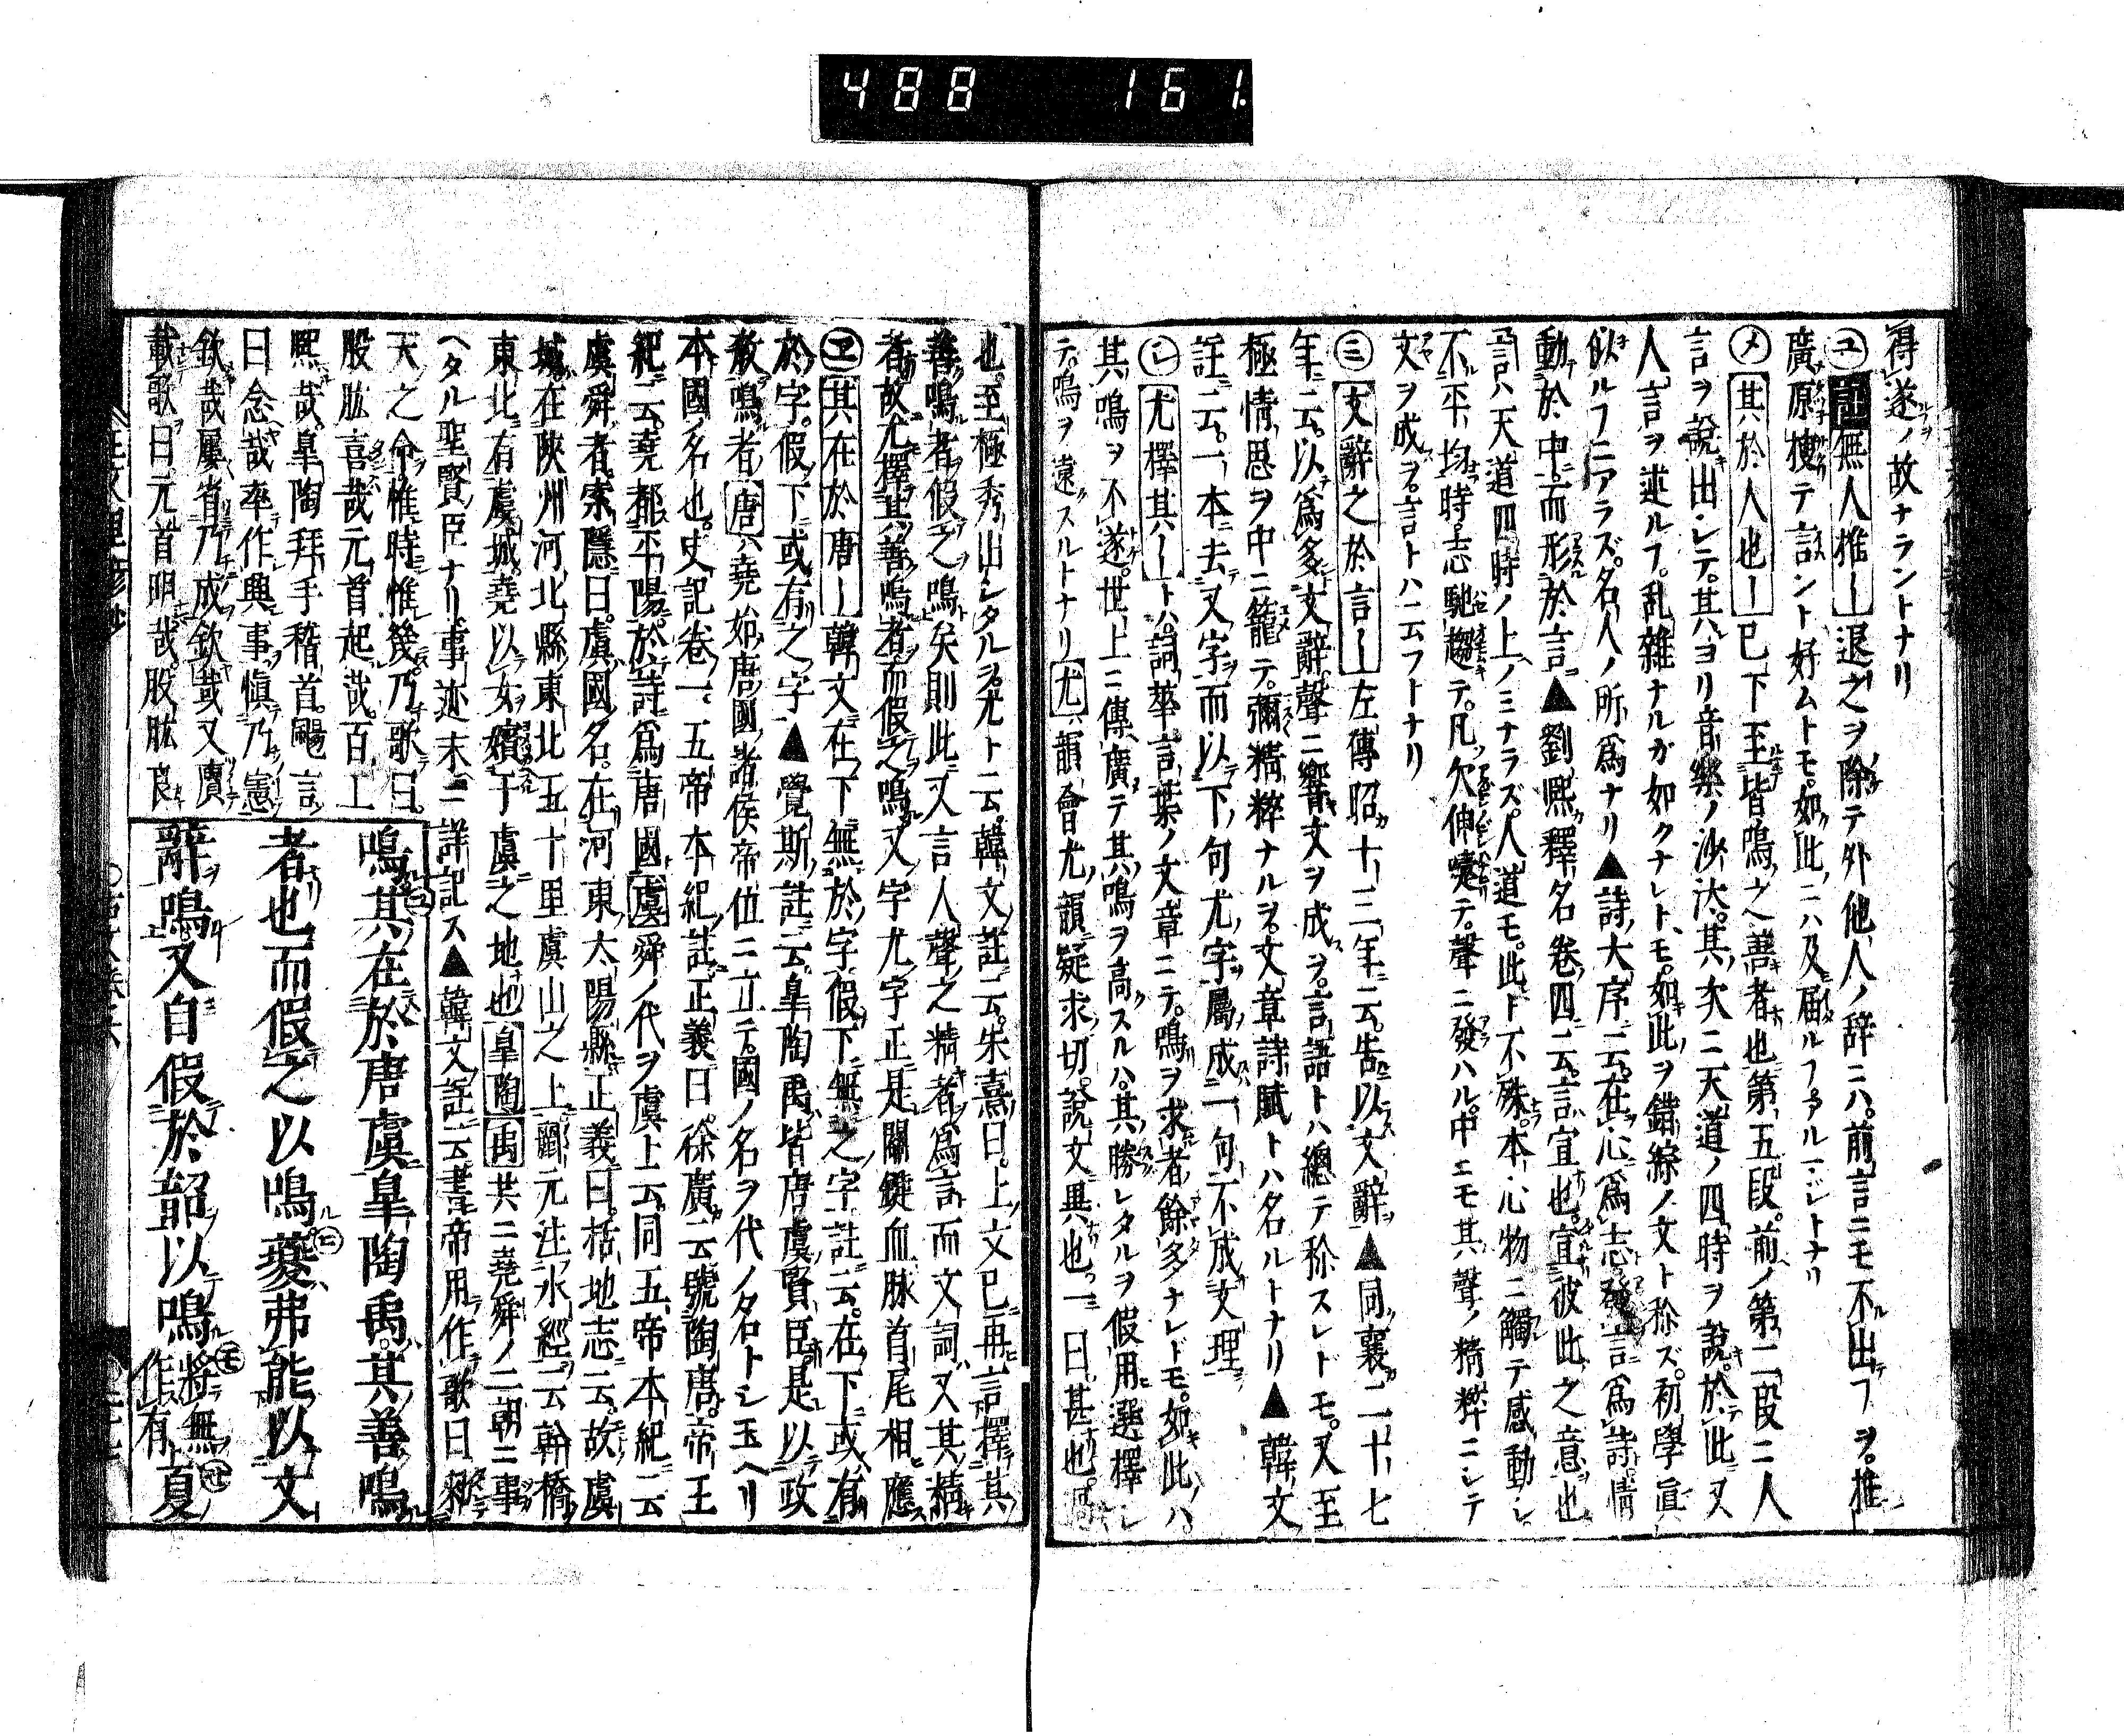 488 161.
得遂ノ故ナラントナリ
㋴註無人推ー退之ヲ除テ外他人ノ辞ニハ前言ニモ不出フヲ推
廣原捜テ言ント好ムトモ如此ニハ及届ルフアルマジトナリ
㋱其於人也ー已下至皆鳴之善者也第五段前ノ第二段ニ人
言ヲ說出シテ其ヨリ音樂ノ沙汰其次ニ天道ノ四時ヲ說於此又
人言ヲ述ルフ乱雜ナルガ如クナレトモ如此ヲ錯綜ノ文ト称ズ初學眞
似ルフニアラズ名人ノ所爲ナリ▲詩大序ニ云在心爲志發言爲詩情
動於中而形於言▲劉熙釋名卷四云言宜也宜彼此之意也
言ハ天道四時ノ上ノミナラズ人道モ此ト不殊本心物ニ觸テ感動シ
不平均時志馳趨テ凡欠伸嚏テ聲ニ發ハル中ニモ其聲ノ精粹ニシテ
文ヲ成ヲ言トハ云フトナリ
㋯文辭之於言ー左傳昭十三年ニ云告以文辭▲同襄二十七
年ニ云以爲多文辭聲ニ響キ文ヲ成スヲ言語トハ總テ称スレトモ又至
極情思ヲ中ニ籠テ彌精粹ナルヲ文章詩賦トハ名ルトナリ▲韓文
註ニ云一本去又字而以下句尤字屬成ニ一句不成文理
㋛尤擇其ートハ詞華言葉ノ文章ニテ鳴ヲ求者餘多ナレドモ如此ハ
其鳴ヲ不遂世上ニ傳廣テ其鳴ヲ高スルハ其勝レタルヲ假用選擇シ
テ鳴ヲ遠スルトナリ尤韻會尤韻疑求切說文異也一曰甚也
也至極秀出シタルヲ尤ト云韓文註云朱熹曰上文已再言擇其
善鳴者假之鳴矣則此又言人聲之精者爲言而文詞又其精
者故尤擇其善鳴者而假之鳴又字尤字正是關鍵血脉首尾相應
㋓其在於唐ー韓文在下無於字假下無之字註云在下或有
於字假下或有之字▲覺斯註云皐陶禹皆唐虞賢臣是以政
教鳴者唐ハ堯始唐國諸侯帝位ニ立テ國ノ名ヲ代ノ名トシ玉ヘリ
本國名也史記卷一五帝本紀註正義曰徐廣云號陶唐帝王
紀云堯都平陽於詩爲唐國虞舜ノ代ヲ虞上云同五帝本紀云
虞舜者索隱曰虞國名在河東太陽縣正義曰括地志云故虞
城在陝州河北縣東北五十里虞山之上酈元注水經云幹橋
東北有虞城堯以女嬪于虞之地也皐陶禹共ニ堯舜ノ二朝ニ事
ヘタル聖賢臣ナリ事迹末ニ詳記ス▲韓文註云書帝用作歌曰
天之命惟時惟幾乃歌曰
股肱喜哉元首起哉百工
熙哉皐陶拜手稽首颺言
曰念哉率作興事愼乃憲
欽哉屢省乃成欽哉又賡
載歌曰元首明哉股肱良
鳴其在於唐虞皐陶禹其善鳴
者也而假之以鳴夔弗能以文
辭鳴又自假於韶以鳴將無作有夏